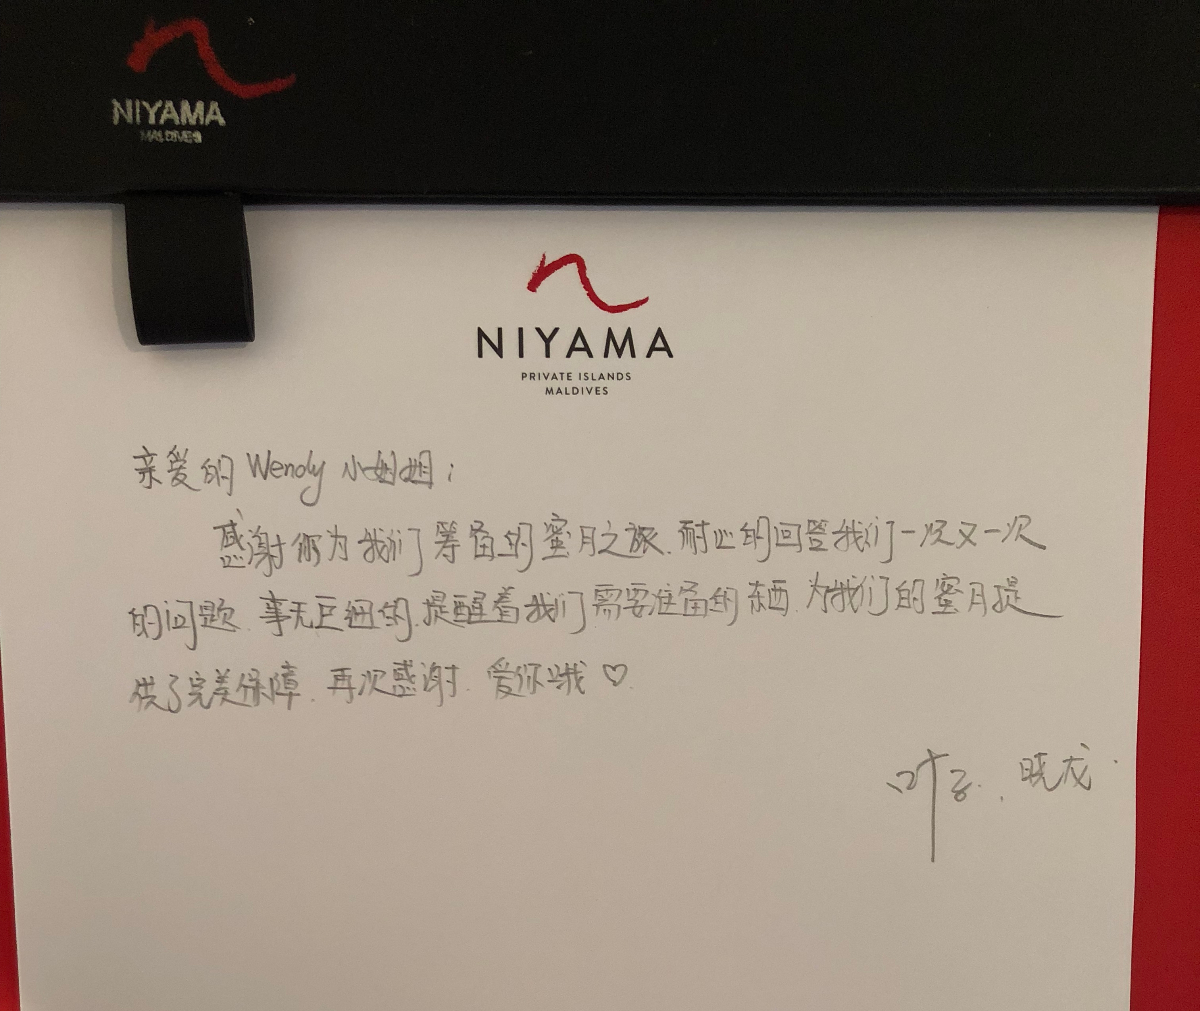 NIYAMA
MALDIVES
NIYAMA
PRIVATE ISLANDS
MALDIVES
亲爱的 Wendy 小姐姐：
感谢你为我们筹备的蜜月之旅，耐心的回答我们一次又一次
的问题，事无巨细的，提醒着我们需要准备的东西，为我们的蜜月提
供了完美保障，再次感谢，爱你哦♡
叶子、晓龙